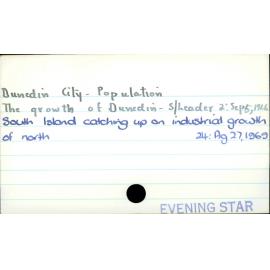 Dunedin City - Population
The growth of Dunedin - S/Leader 2: Sept 5,
South Island catching up on industrial growth
of north 24: Ag 27, 1969
EVENING STAR